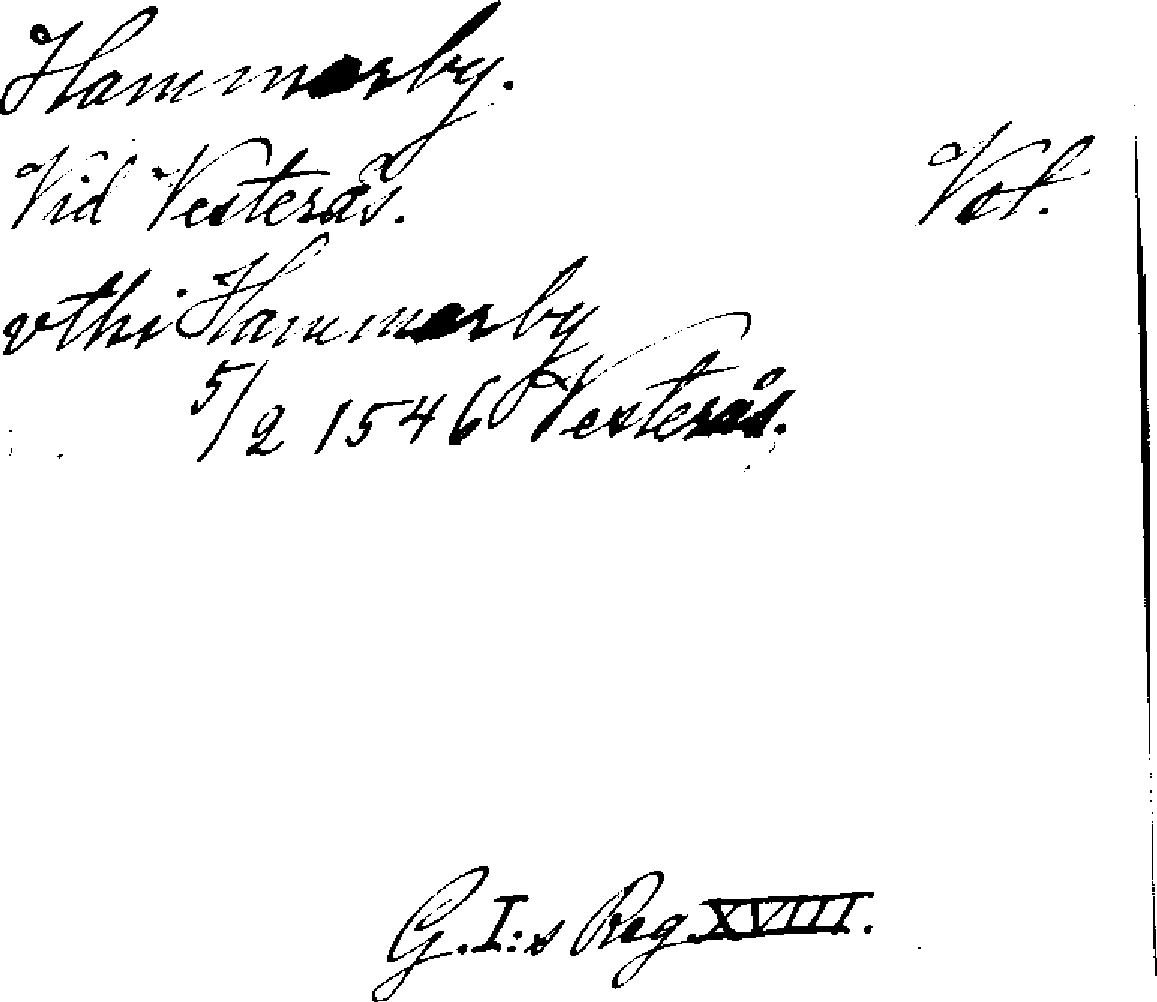 Hammarby.
Vid Vesterås. Vst.
vthi Hammarby
5/2 1546 Vesterås.
G.I:s Reg. XVIII.